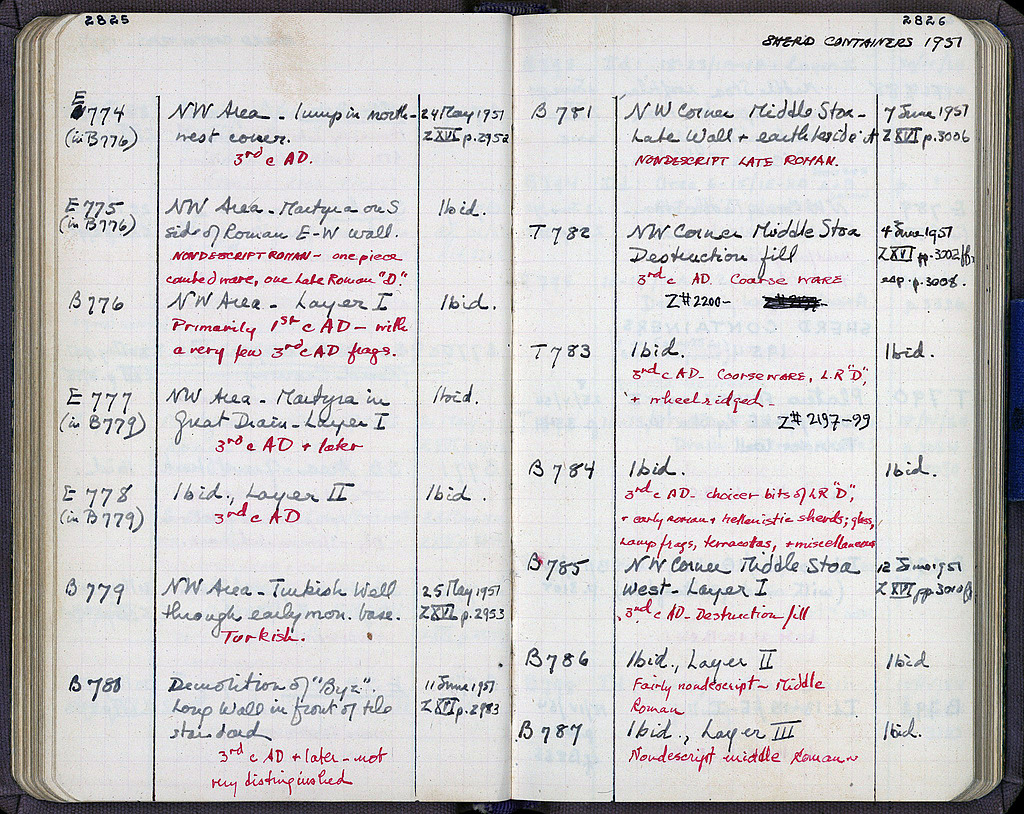 2825
E 774 NW Area - lump in north- 24 May 1951
(in B776) west corner. Z XVI p. 2952
3rd c AD.
E 775 NW Area - Martyra on S Ibid.
(in B776) side of Roman E-W wall.
NONDESCRIPT ROMAN - one piece
combed ware, one Late Roman "D".
B 776 NW Area - Layer I Ibid.
Primarily 1st c AD - with
a very few 3rd c AD frags.
E 777 NW Area - Martyra in Ibid.
(in B779) Great Drain - Layer I
3rd c AD + later
E 778 Ibid., Layer II Ibid.
(in B779) 3rd c AD
B 779 NW Area - Turkish Well 25 May 1951
through early mon. base. Z XVI p. 2953
Turkish.
B 780 Demolition of "Byz". 11 June 1951
Long Wall in front of tile Z XVI p. 2983
standard
3rd c AD + later - not
very distinguished
2826
SHERD CONTAINERS 1951
B 781 NW Corner Middle Stoa - 7 June 1951
Late Wall + earth beside it Z XVI p. 3006
NONDESCRIPT LATE ROMAN.
T 782 NW Corner Middle Stoa 4 June 1951
Destruction fill Z XVI pp. 3002 ff.
3rd c AD. Coarse ware esp. p. 3008.
Z# 2200-
T 783 Ibid. Ibid.
3rd c AD - Coarse ware, L.R "D",
+ wheel ridged.
Z# 2197-99
B 784 Ibid. Ibid.
3rd c AD - choicer bits of LR "D",
+ early roman + Hellenistic sherds; glass,
Lamp frags, terracottas, + miscellaneous
B 785 NW Corner Middle Stoa 12 June 1951
West - Layer I Z XVI pp. 3010 ff
3rd c AD - Destruction fill
B 786 Ibid., Layer II Ibid
Fairly nondescript - Middle
Roman
B 787 Ibid., Layer III Ibid.
Nondescript middle Roman